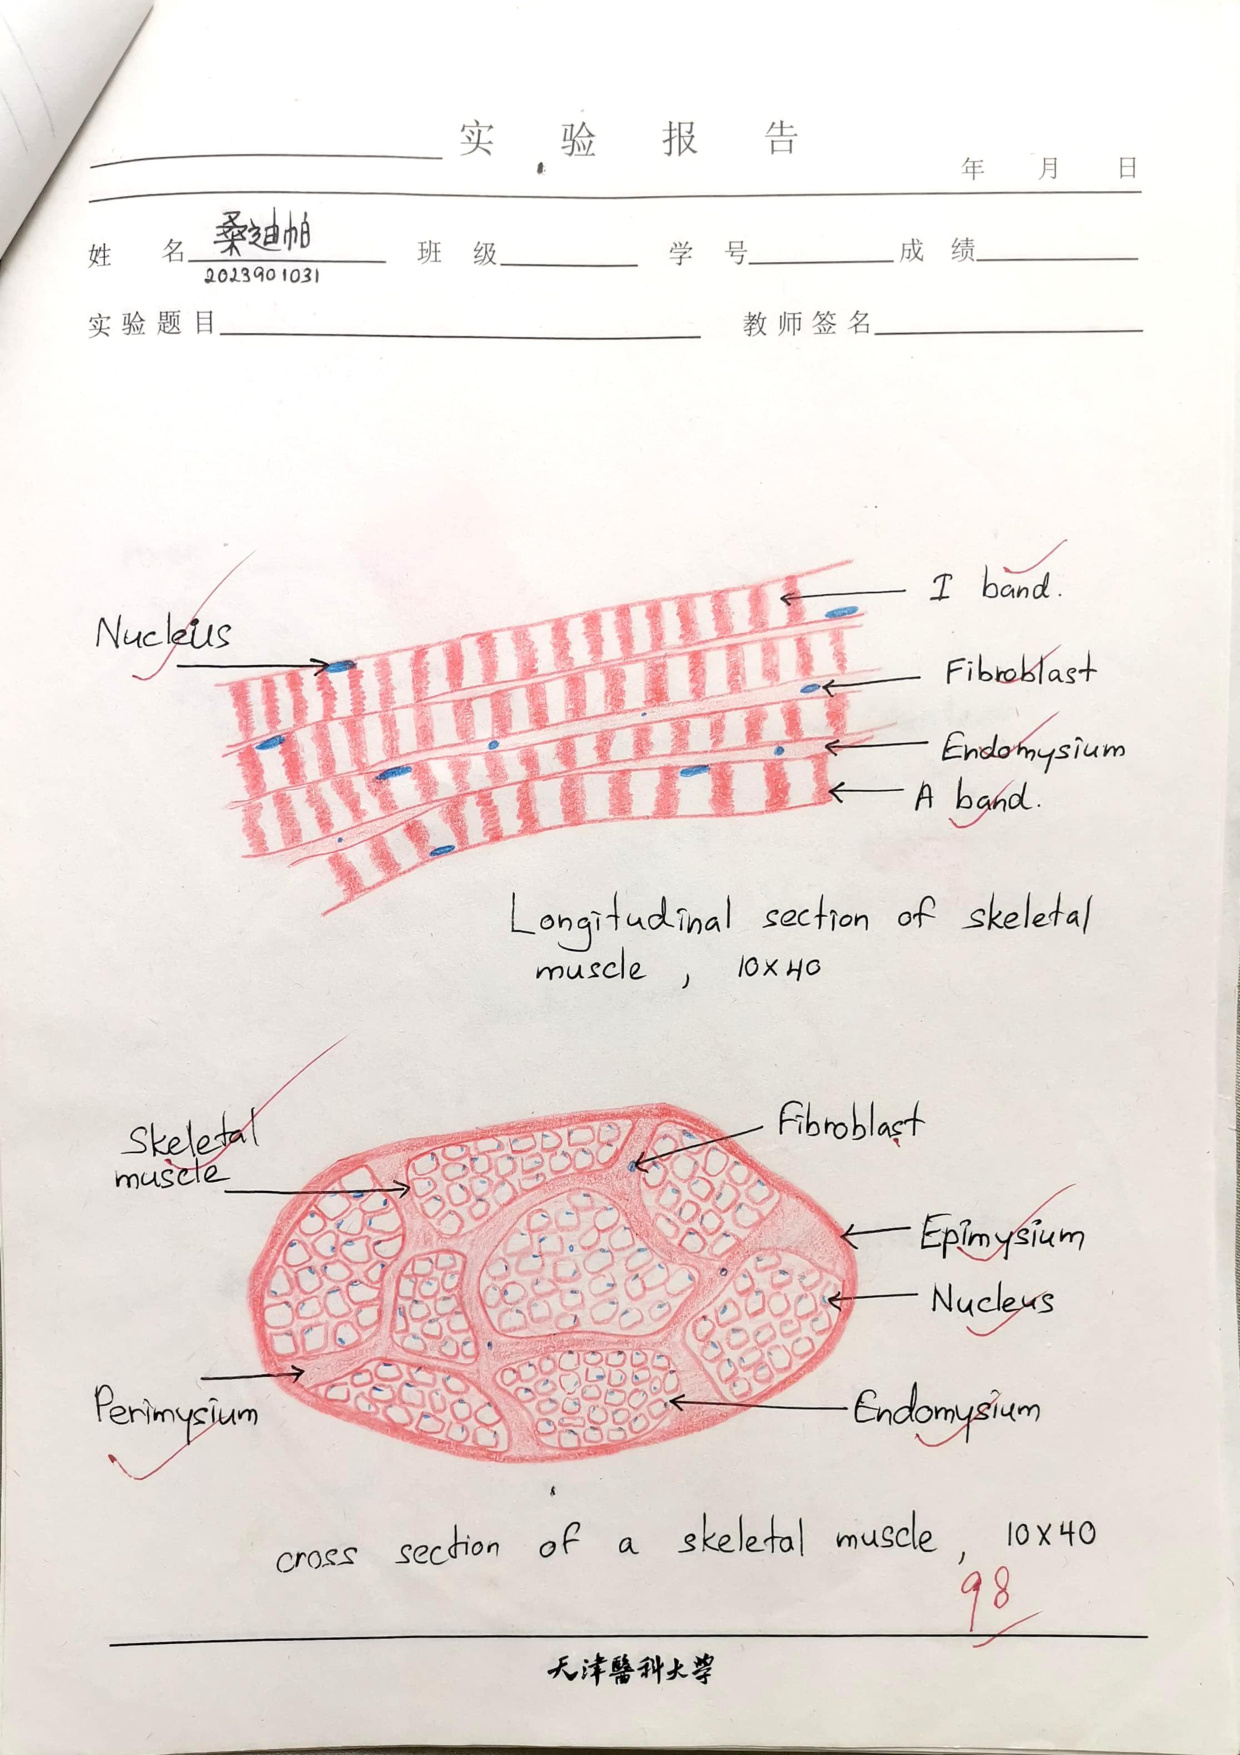 实验报告
年 月 日
姓名 桑迪帕 班级 学号 成绩
2023901031
实验题目 教师签名
I band.
Nucleus
Fibroblast
Endomysium
A band.
Longitudinal section of skeletal
muscle, 10x40
Skeletal
muscle
Fibroblast
Epimysium
Nucleus
Perimysium
Endomysium
cross section of a skeletal muscle, 10x40
98
天津醫科大学